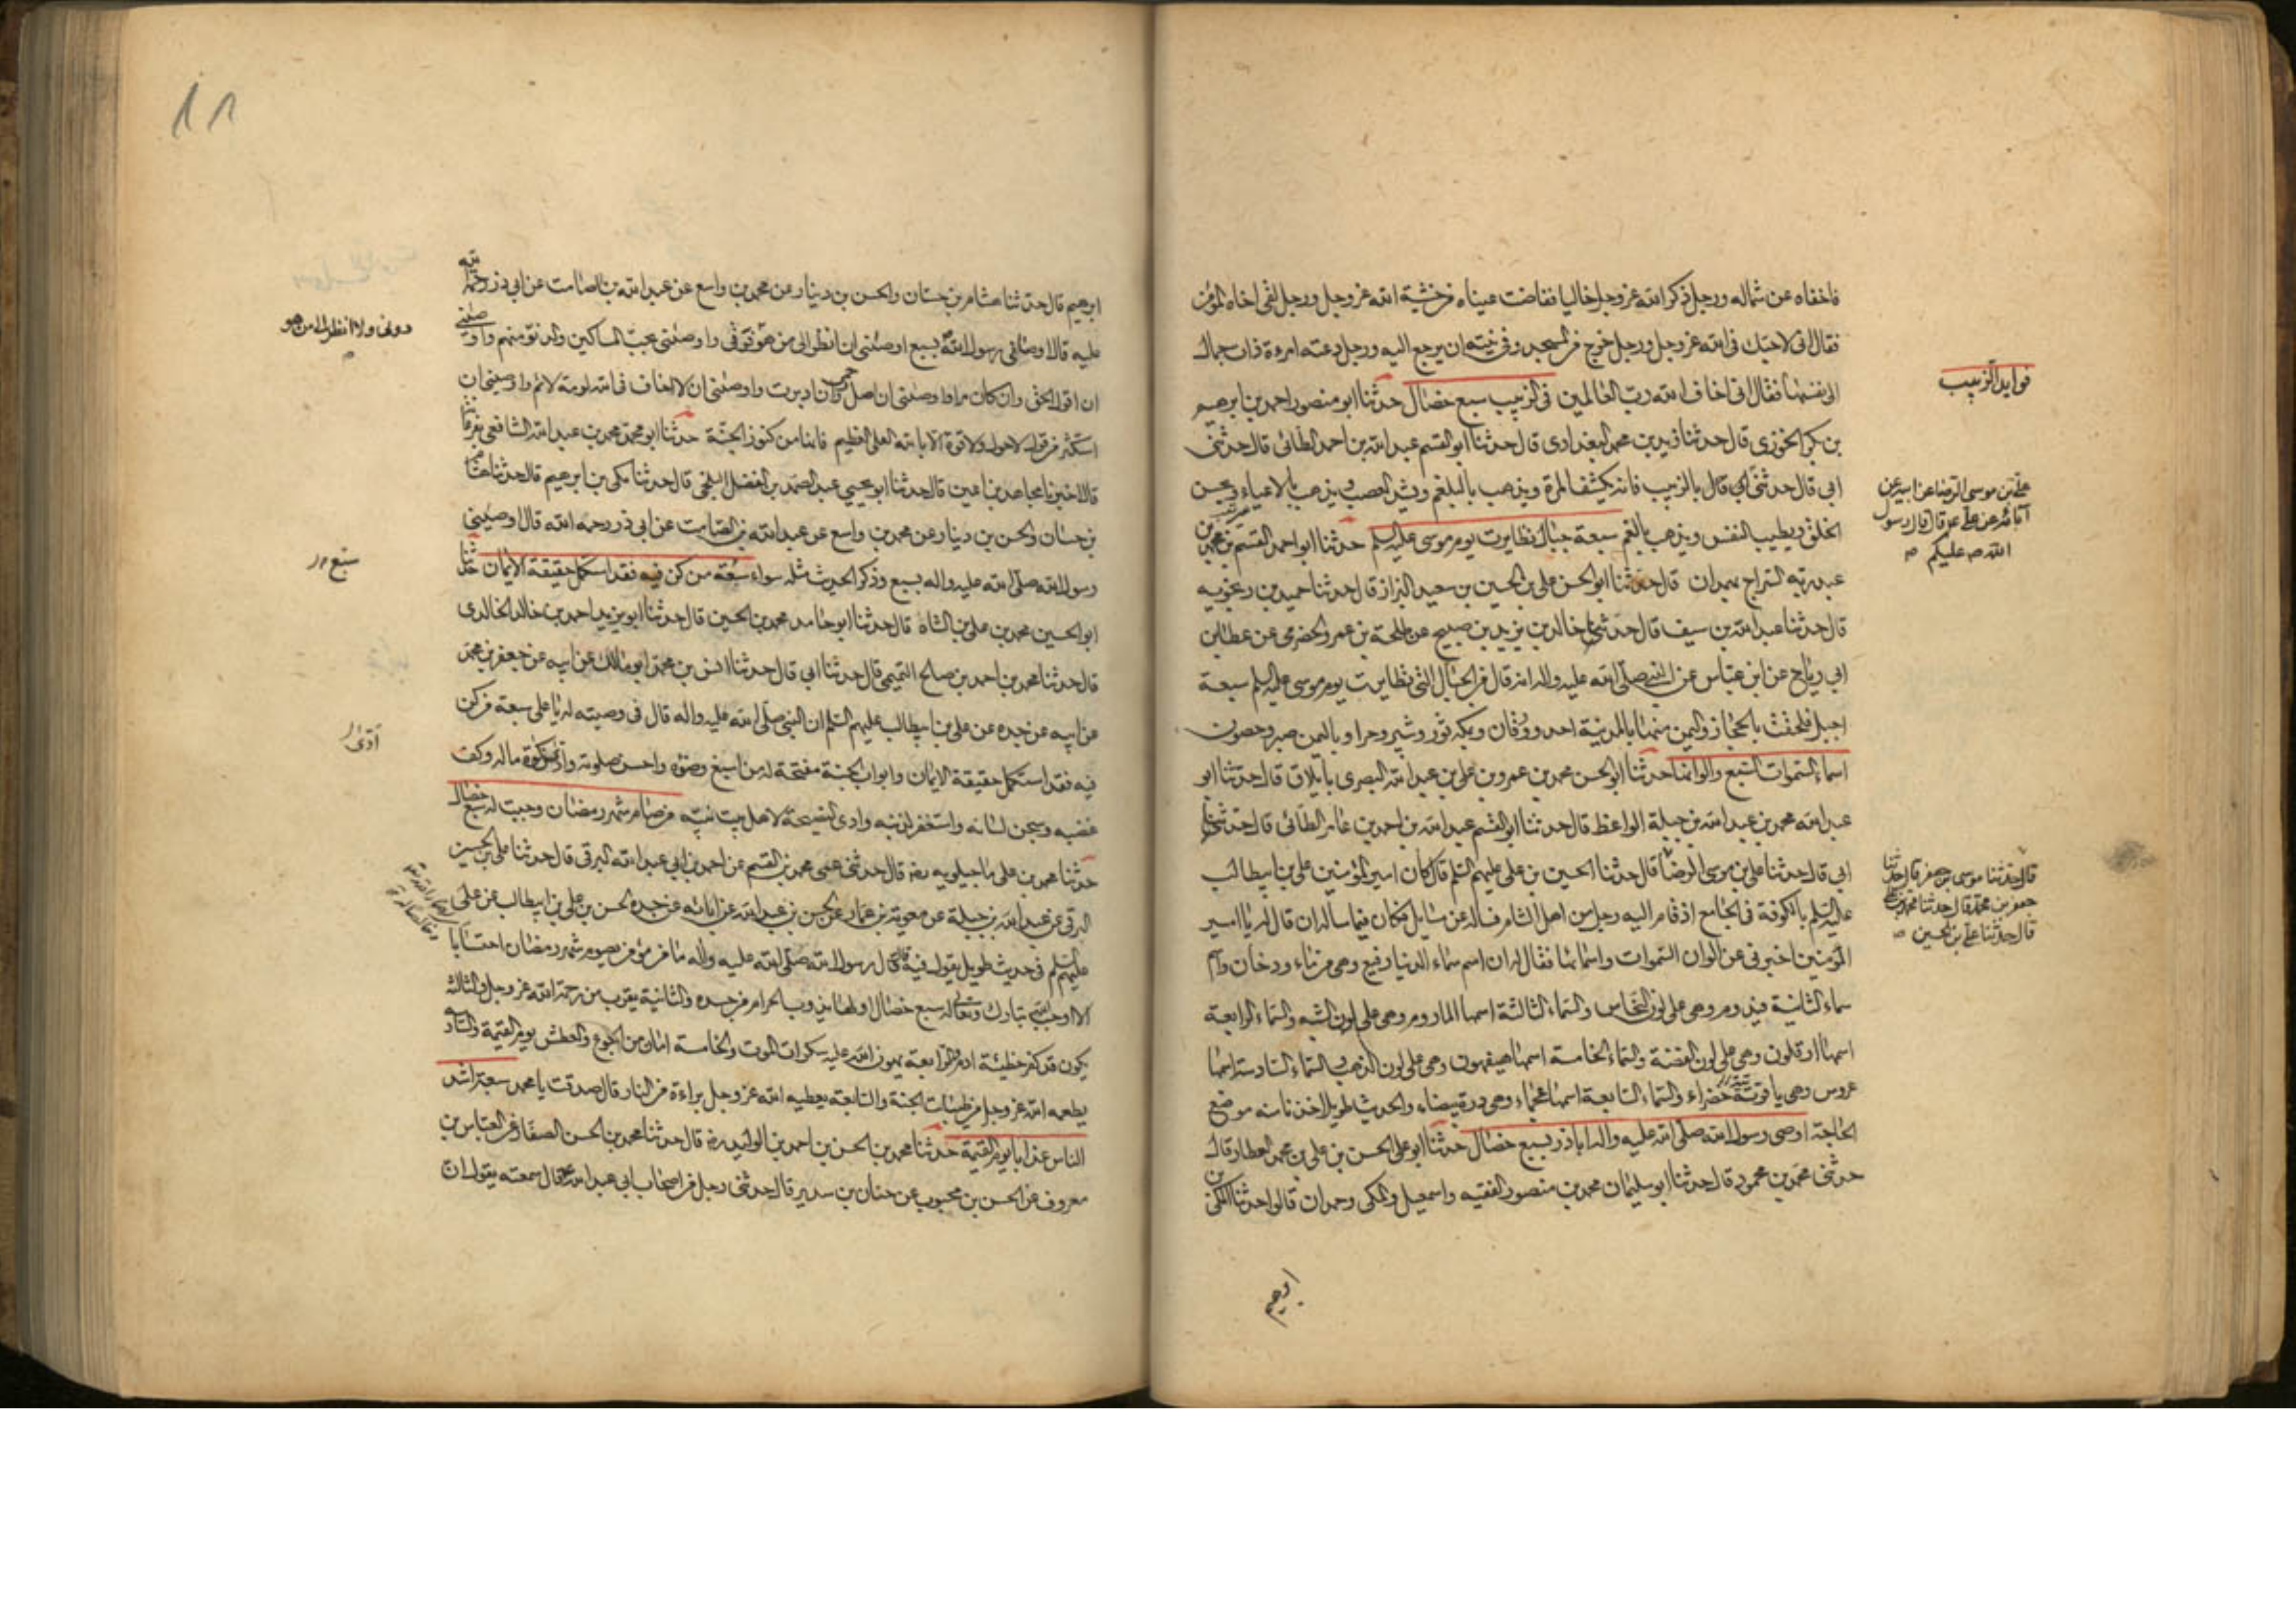 فاخفاه عن شماله ورجل ذكر الله عز وجل خاليا ففاضت عيناه من خشية الله عز وجل ورجل لقى اخاه المؤمن
فقال انى لاحبك فى الله عز وجل ورجل خرج من المسجد وفى نيته ان يرجع اليه ورجل دعته امرءة ذات جمال
الى نفسها فقال انى اخاف الله رب العالمين فى الزبيب سبع خصال حدثنا ابو منصور احمد بن ابرهيم
فوايد الزبيب
بن بكر الخوزى قال حدثنا زيد بن محمد البغدادى قال حدثنا ابو القسم عبد الله بن احمد الطائى قال حدثنى
ابى قال حدثنى قال بالزبيب فانه يكشف المرة ويذهب بالبلغم ويشد العصب ويذهب بالاعياء ويحسن
على بن موسى الرضا عن ابيه عن
آبائه عن على ع قال قال رسول
الله ص عليكم
الخلق ويطيب النفس ويذهب بالغم سبعة جبال تطايرت يوم موسى عليه السلم حدثنا ابو احمد القسم بن محمد بن
عبد ربه السراج بهمدان قال حدثنا ابو الحسن على بن الحسين بن سعيد البزاز قال حدثنا حميد بن زنجويه
قال حدثنا عبد الله بن سيف قال حدثنى خالد بن يزيد بن صبيح عن طلحة بن عمرو الحضرمى عن عطا بن
ابى رياح عن ابن عباس عن النبى صلى الله عليه واله انه قال من الجبال التى تطايرت يوم موسى عليه السلم سبعة
اجبل فلحقت بالحجاز واليمن منها بالمدينة احد وورقان وبمكة ثور وثبير وحراء وباليمن صبر وحصون
اسماء السموات السبع والوانها حدثنا ابو الحسن محمد بن عمرو بن على بن عبد الله البصرى بايلاق قال حدثنا ابو
عبد الله محمد بن عبد الله بن جبلة الواعظ قال حدثنا ابو القسم عبد الله بن احمد بن عامر الطائى قال حدثنا
ابى قال حدثنا على بن موسى الرضا قال حدثنا الحسين بن على عليهم السلم قال كان امير المؤمنين على بن ابيطالب
قال حدثنا موسى بن جعفر قال حدثنا
جعفر بن محمد قال حدثنا محمد بن على
قال حدثنا على بن الحسين
عليه السلم بالكوفة فى الجامع اذ قام اليه رجل من اهل الشام فساله عن مسايل فكان فيما ساله ان قال له يا امير
المؤمنين اخبرنى عن الوان السموات واسمائها فقال له ان اسم سماء الدنيا رفيع وهى من ماء ودخان واسم
سماء الثانية فيدوم وهى على لون النحاس والسماء الثالثة اسمها الماروم وهى على لون الشبه والسماء الرابعة
اسمها ارقلون وهى على لون الفضة والسماء الخامسة اسمها هيفهون وهى على لون الذهب والسماء السادسة اسمها
عروس وهى ياقوتة خضراء والسماء السابعة اسمها عجماء وهى درة بيضاء والحديث طويل اخذنا منه موضع
الحاجة اوصى رسول الله صلى الله عليه واله اباذر بسبع خصال حدثنا ابو على الحسن بن على بن محمد العطار قال
حدثنى محمد بن محمود قال حدثنا ابو سليمان محمد بن منصور الفقيه واسمعيل والمكى وحمدان قالوا حدثنا المكى بن
ابرهيم
١٨
ابرهيم قال حدثنا هشام بن حسان والحسن بن دينار عن محمد بن واسع عن عبد الله بن الصامت عن ابى ذر رحمة الله
عليه قال اوصانى رسول الله بسبع اوصانى ان انظر الى من هو فوقى واوصانى بحب المساكين والدنو منهم واوصانى
دونى ولا انظر الى من هو
ان اقول الحق وان كان مرا واوصانى ان اصل رحمى وان ادبرت واوصانى ان لا اخاف فى الله لومة لائم واوصانى ان
استكثر من قول لاحول ولا قوة الا بالله العلى العظيم فانها من كنوز الجنة حدثنا ابو محمد محمد بن عبد الله الشافعى بفرغانة
قال اخبرنا مجاهد بن اعين قال حدثنا ابو يحيى عبد الصمد بن الفضل البلخى قال حدثنا مكى بن ابرهيم قال حدثنا هشام
بن حسان والحسن بن دينار عن محمد بن واسع عن عبد الله بن الصامت عن ابى ذر رحمه الله قال اوصانى
رسول الله صلى الله عليه واله بسبع وذكر الحديث مثله سواء سبعة من كن فيه فقد استكمل حقيقة الايمان حدثنا
ابو الحسين محمد بن على بن الشاه قال حدثنا ابو حامد محمد بن الحسين قال حدثنا ابو يزيد احمد بن خالد الخالدى
قال حدثنا محمد بن احمد بن صالح التميمى قال حدثنا ابى قال حدثنا انس بن محمد ابو مالك عن ابيه عن جعفر بن محمد
عن ابيه عن جده عن على بن ابيطالب عليهم السلم ان النبى صلى الله عليه واله قال فى وصيته له يا على سبعة من كن
فيه فقد استكمل حقيقة الايمان وابواب الجنة مفتحة له من اسبغ وضوءه واحسن صلوته وادى زكوة ماله وكف
ادى
غضبه وسجن لسانه واستغفر لذنبه وادى النصيحة لاهل بيت نبيه من صام شهر رمضان وجبت له سبع خصال
حدثنا محمد بن على ماجيلويه رضه قال حدثنى عمى محمد بن القسم عن احمد بن ابى عبد الله البرقى قال حدثنا على بن الحسين
البرقى عن عبد الله بن جبلة عن معوية بن عمار عن الحسن بن عبد الله عن ابائه عن جده الحسن بن على بن ابيطالب عن على
عليهم السلم فى حديث طويل يقول فيه قال رسول الله صلى الله عليه واله ما من مؤمن يصوم شهر رمضان احتسابا
الا اوجب الله تبارك وتعالى له سبع خصال اولها يذوب الحرام من جسده والثانية يقرب من رحمة الله عز وجل والثالثة
يكون قد كفر خطيئة ادم والرابعة يهون الله عليه سكرات الموت والخامسة امان من الجوع والعطش يوم القيمة والسادسة
يطعمه الله عز وجل من طيبات الجنة والسابعة يعطيه الله عز وجل براءة من النار قال صدقت يا محمد سبعة اشد
الناس عذابا يوم القيمة حدثنا محمد بن الحسن بن احمد بن الوليد رضه قال حدثنا محمد بن الحسن الصفار عن العباس بن
معروف عن الحسن بن محبوب عن حنان بن سدير قال حدثنى رجل من اصحاب ابى عبد الله ع قال سمعته يقول ان